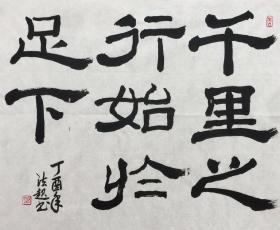 千里之
行始於
足下
丁酉年
法超书